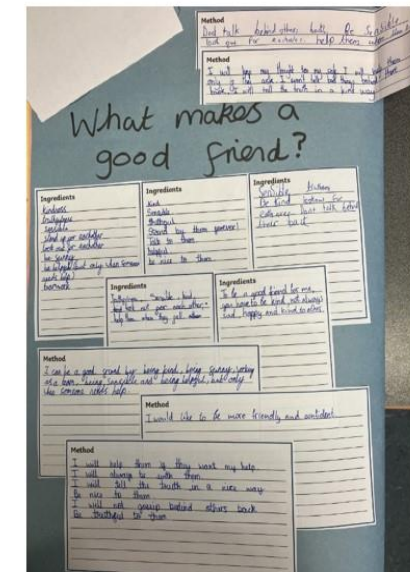 Method
Dont talk behind others back. Be Sensible.
look out for eachother. help them
Method
I will tell the truth in a kind way
What makes a
good friend?
Ingredients
kindness
truthfulness
sensible
stand up for eachother
look out for eachother
be funny
be helpful but only when someone
needs help!
teamwork
Ingredients
Kind
Sensible
truthful
Stand by them forever!
Talk to them
helpful
be nice to them
Ingredients
Sensible
Be kind looking for
eachother Dont talk behind
their back
Ingredients
Sensible, kind
and look out for each other,
help them when they fall
Ingredients
To be a good friend for me,
you have to be kind, not always
sad, happy and kind to others
Method
I can be a good friend by: being kind, being funny, working
as a team, being sensible and being helpful, but only
when someone needs help.
Method
I would like to be more friendly and confident
Method
I will help them if they want my help
I will always be with them
I will tell the truth in a nice way
Be nice to them
I will not gossip behind others back
Be truthful to them